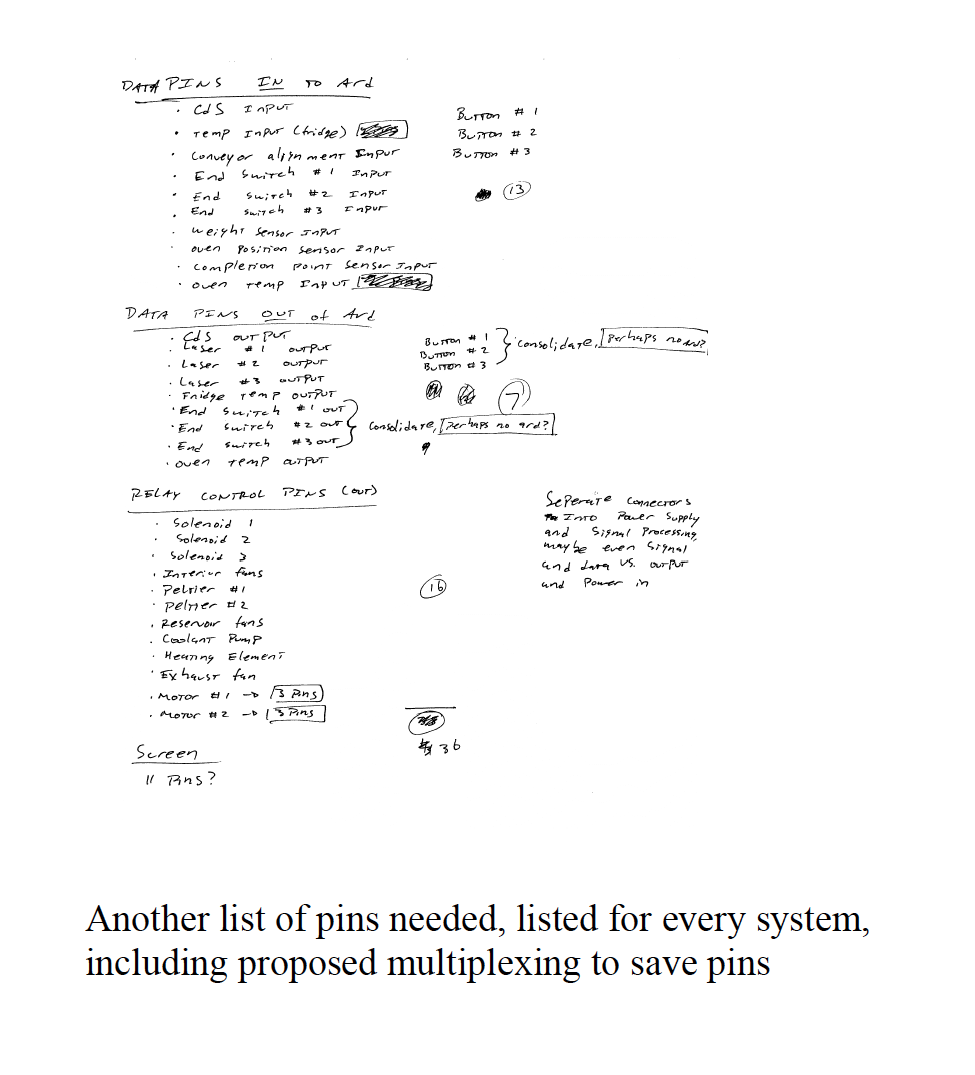 DATA PINS IN TO Ard
· CdS INPUT
· Temp Input (fridge)
· Conveyor alignment Input
· End Switch #1 Input
· End Switch #2 Input
· End Switch #3 Input
· weight sensor Input
· oven Position Sensor Input
· Completion Point Sensor Input
· oven temp Input
Button #1
Button #2
Button #3
13
DATA PINS OUT of Ard
· CdS output
· Laser #1 output
· Laser #2 output
· Laser #3 output
· Fridge temp output
· End Switch #1 out
· End Switch #2 out
· End Switch #3 out
· oven temp output
Consolidate, Perhaps no ard?
Button #1
Button #2
Button #3
Consolidate, Perhaps no
7
RELAY CONTROL PINS (out)
· Solenoid 1
· Solenoid 2
· Solenoid 3
· Interior fans
· Peltier #1
· Peltier #2
· Reservoir fans
· Coolant Pump
· Heating Element
· Exhaust fan
· Motor #1 → 3 Pins
· Motor #2 → 3 Pins
16
36
Seperate Connectors
Into Power Supply
and Signal Processing,
maybe even Signal
and data vs. output
and Power in
Screen
11 Pins?
Another list of pins needed, listed for every system,
including proposed multiplexing to save pins